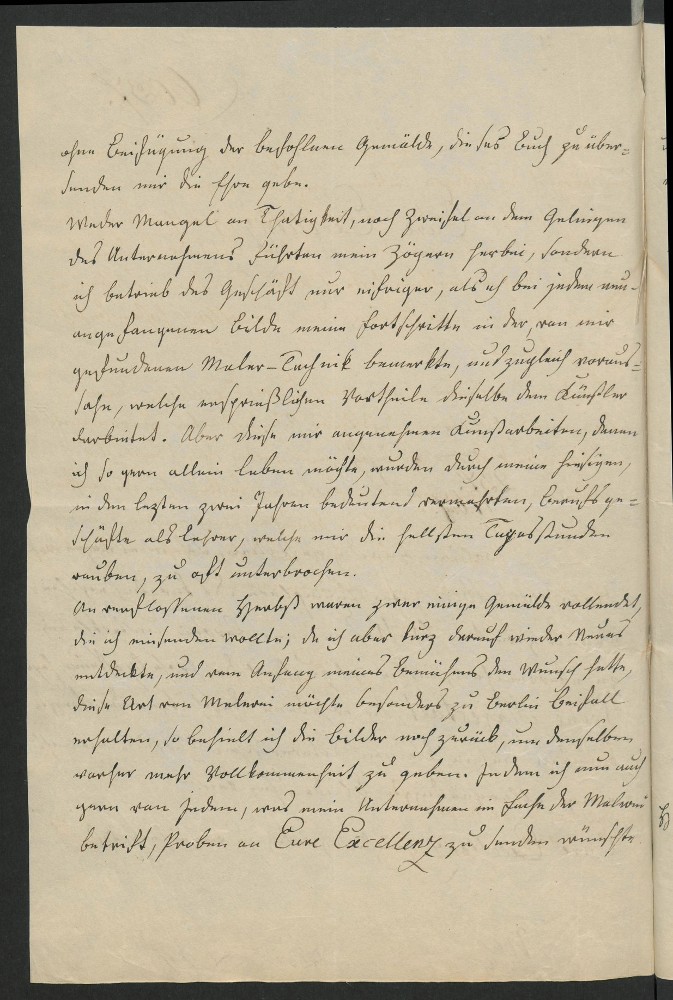 ohne Beifügung der befohlnen Gemälde, dieses Buch zu über=
senden mir die Ehre gebe.
Weder Mangel an Thatigkeit, noch Zweifel an dem Gelingen
des Unternehmens führten mein Zögern herbei, sondern
ich betrieb das Geschäft nur eifriger, als ich bei jedem neu-
angefangenen Bilde meine Fortschritte in der, von mir
gefundenen Maler-Technik bemerkte, und zugleich voraus=
sahe, welche ersprießlichen Vortheile dieselbe dem Künstler
darbietet. Aber diese mir angenehmen Kunstarbeiten, denen
ich so gern allein leben möchte, wurden durch meine hiesigen,
in den lezten zwei Jahren bedeutend vermehrten, Berufsge=
schäfte als Lehrer, welche mir die hellsten Tagesstunden
rauben, zu oft unterbrochen.
Im verflossenen Herbst waren zwar einige Gemälde vollendet,
die ich einsenden wollte; da ich aber kurz darauf wieder Neues
entdeckte, und vom Anfang meines Bemühens den Wunsch hatte,
diese Art von Malerei möchte besonders zu Berlin Beifall
erhalten, so behielt ich die Bilder noch zurück, um denselben
vorher mehr Vollkommenheit zu geben. Indem ich nun auch
gern von Jedem, was mein Unternehmen im Fache der Malerei
betrift, Proben an Eure Excellenz zu senden wünschte